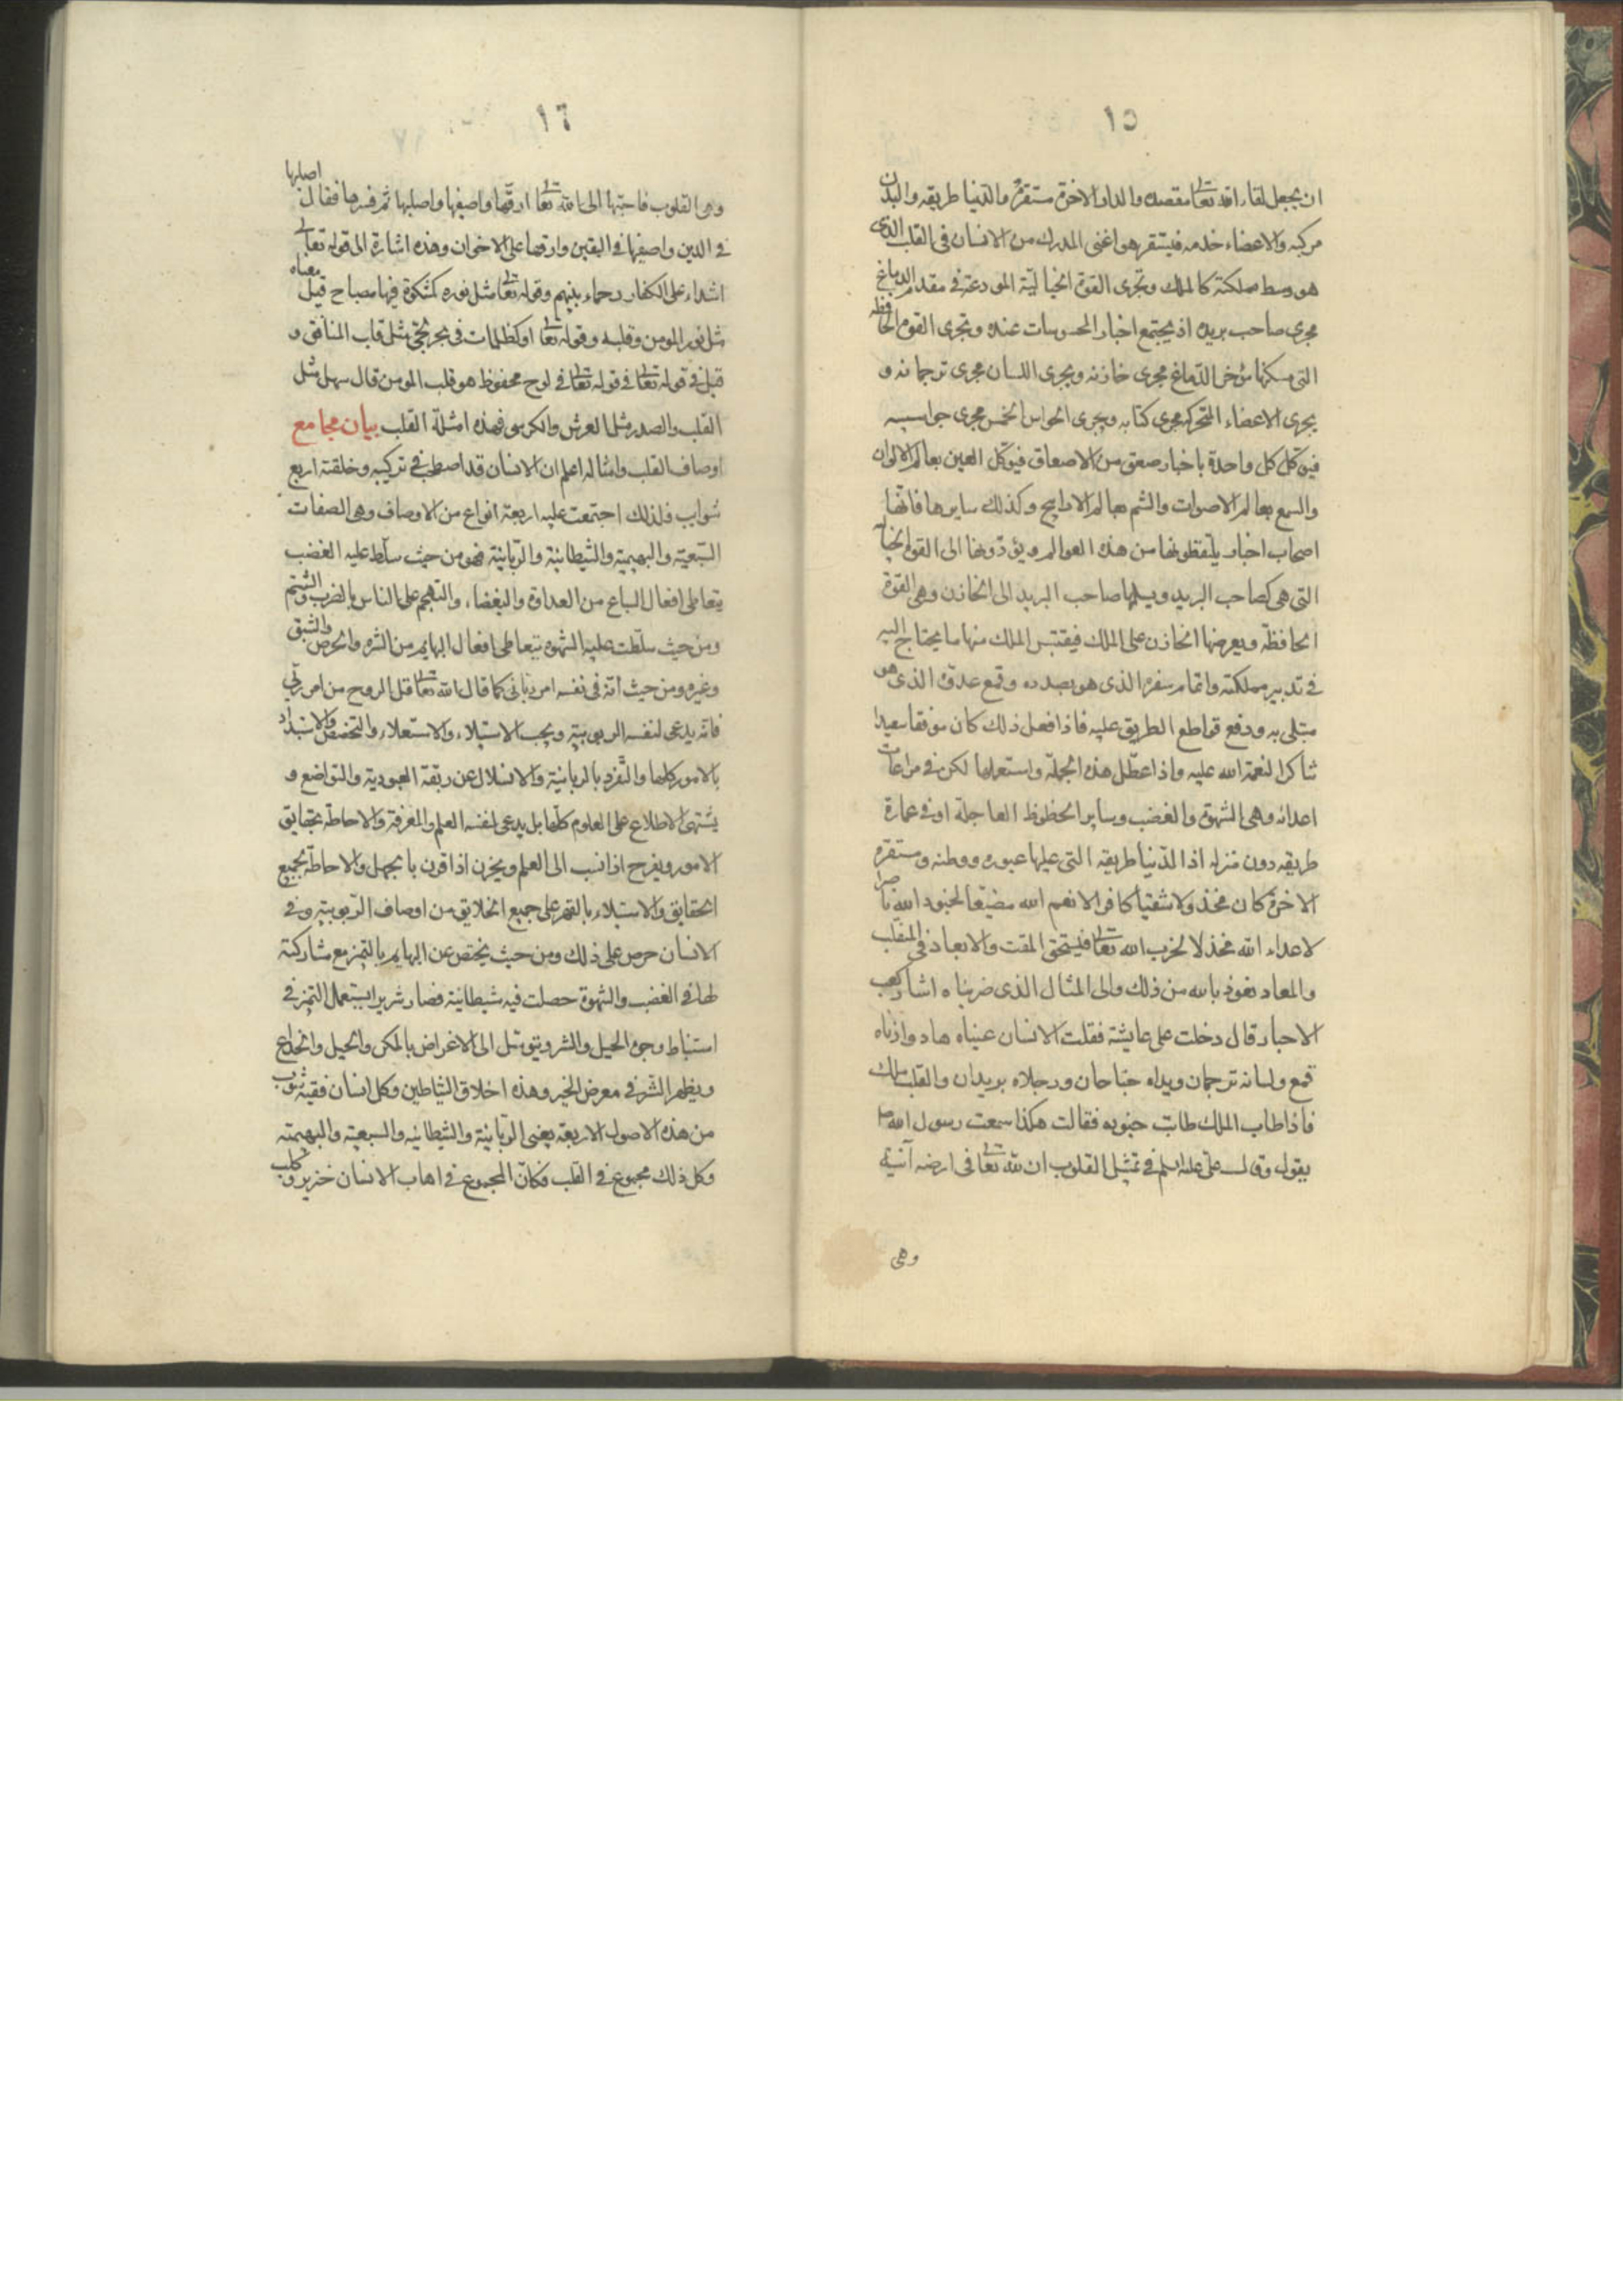 ١٥
ان يجعل لقاء الله تعالى مقصده والدار الاخرة مستقره والدنيا طريقه والبدن
مركبه والاعضاء خدمه فيستقر هو اعنى المدرك من الانسان فى القلب الذى
هو وسط مملكته كالملك ويجرى القوة الخيالية المودعة فى مقدم الدماغ
مجرى صاحب بريده اذ يجتمع اخبار المحسوسات عنده ويجرى القوه الحافظه
التى مسكنها مؤخر الدماغ مجرى خازنه ويجرى اللسان مجرى ترجمانه و
يجرى الاعضاء المتحركه مجرى كتابه ويجرى الحواس الخمس مجرى جواسيسه
فيوكل كل واحدة باخبار صعق من الاصعاق فيوكل العين بعالم الالوان
والسمع بعالم الاصوات والشم بعالم الاراييح وكذلك سايرها فانها
اصحاب اخبار يلتقطونها من هذه العوالم ويؤدونها الى القوه الخيالية
التى هى كصاحب البريد ويسلمها صاحب البريد الى الخازن وهى القوة
الحافظة ويعرضها الخازن على الملك فيقتبس الملك منها ما يحتاج اليه
فى تدبير مملكته واتمام سفره الذى هو بصدده وقمع عدوه الذى هو
مبتلى به ودفع قواطع الطريق عليه فاذا فعل ذلك كان موفقا سعيدا
شاكرا لنعمة الله عليه واذا عطل هذه الجملة واستعملها لكن فى مراعات
اعدائه وهى الشهوة والغضب وساير الحظوظ العاجلة او فى عمارة
طريقه دون منزله اذ الدنيا طريقه التى عليها عبوره ووطنه ومستقره
الاخرة كان مخذولا شقيا كافرا لانعم الله مضيعا لجنود الله ناصرا
لاعداء الله مخذلا لحزب الله تعالى فيستحق المقت والابعاد فى المنقلب
والمعاد نعوذ بالله من ذلك والى المثال الذى ضربناه اشار كعب
الاحبار قال دخلت على عايشة فقلت الانسان عيناه هاد واذناه
قمع ولسانه ترجمان ويداه جناحان ورجلاه بريدان والقلب ملك
فاذا طاب الملك طابت جنوده فقالت هكذا سمعت رسول الله ص
يقول وقال على عليه السلم فى تمثيل القلوب ان لله تعالى فى ارضه آنية
وهى
١٦
وهى القلوب فاحبها الى الله تعالى ارقها واصفيها واصلبها ثم فسرها فقال اصلبها
فى الدين واصفيها فى اليقين وارقها على الاخوان وهذه اشارة الى قوله تعالى
اشداء على الكفار رحماء بينهم وقوله تعالى مثل نوره كمشكوة فيها مصباح قيل معناه
مثل نور المومن وقلبه وقوله تعالى او كظلمات فى بحر لجى مثل قلب المنافق و
قيل فى قوله تعالى فى قوله تعالى فى لوح محفوظ هو قلب المومن قال سهل مثل
القلب والصدر مثل العرش والكرسى فهذه امثلة القلب بيان مجامع
اوصاف القلب وامثاله اعلم ان الانسان قد اصطحب فى تركيبه وخلقته اربع
شوايب فلذلك اجتمعت عليه اربعة انواع من الاوصاف وهى الصفات
السبعية والبهيمية والشيطانية والربانية فهو من حيث سلط عليه الغضب
يتعاطى افعال السباع من العداوة والبغضاء والتهجم على الناس بالضرب والشتم
ومن حيث سلطت عليه الشهوه يتعاطى افعال البهايم من الشره والحرص والشبق
وغيره ومن حيث انه فى نفسه امر ربانى كما قال الله تعالى قل الروح من امر ربى
فانه يدعى لنفسه الربوبية ويحب الاستيلاء والاستعلاء والتخصص والاستبداد
بالامور كلها والتفرد بالربانية والانسلال عن ربقة العبودية والتواضع و
يشتهى الاطلاع على العلوم كلها بل يدعى لنفسه العلم والمعرفة والاحاطة بحقايق
الامور ويفرح اذا نسب الى العلم ويحزن اذا قرن بالجهل والاحاطة بجميع
الحقايق والاستيلاء بالقهر على جميع الخلايق من اوصاف الربوبية وفى
الانسان حرص على ذلك ومن حيث يختص عن البهايم بالتميز مع مشاركته
لها فى الغضب والشهوة حصلت فيه شيطانية فصار شريرا يستعمل التميز فى
استنباط وجوه الحيل والشر ويتوصل الى الاغراض بالمكر والحيل والخداع
ويظهر الشر فى معرض الخير وهذه اخلاق الشياطين وكل انسان ففيه شوب
من هذه الاصول الاربعة يعنى الربانية والشيطانيه والسبعية والبهيمته
وكل ذلك مجموع فى القلب فكان المجموع فى اهاب الانسان خنزير وكلب